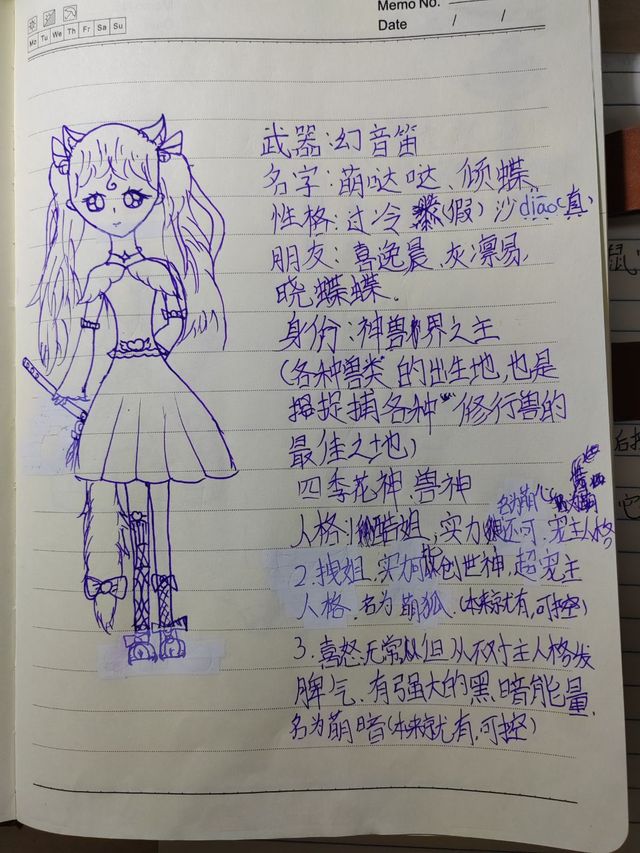 Memo No.
Mo Tu We Th Fr Sa Su
Date / /
武器:幻音笛
名字:萌哒哒、倾蝶
性格:过冷(假)沙diāo(真)
朋友:喜逸晨、灰凛易、
晓蝶蝶.
身份:神兽界之主
(各种兽类的出生地,也是
捉捕各种“修行兽的
最佳之地)
四季花神、兽神
名为萌化
人格:1酷姐,实力还可,宠主人格
2.拽姐,实力创世神,超宠主
人格,名为萌狐.(本来就有,可控)
3.喜怒无常但从不对主人格发
脾气,有强大的黑暗能量,
名为萌暗(本来就有,可控)
鼠
后
它